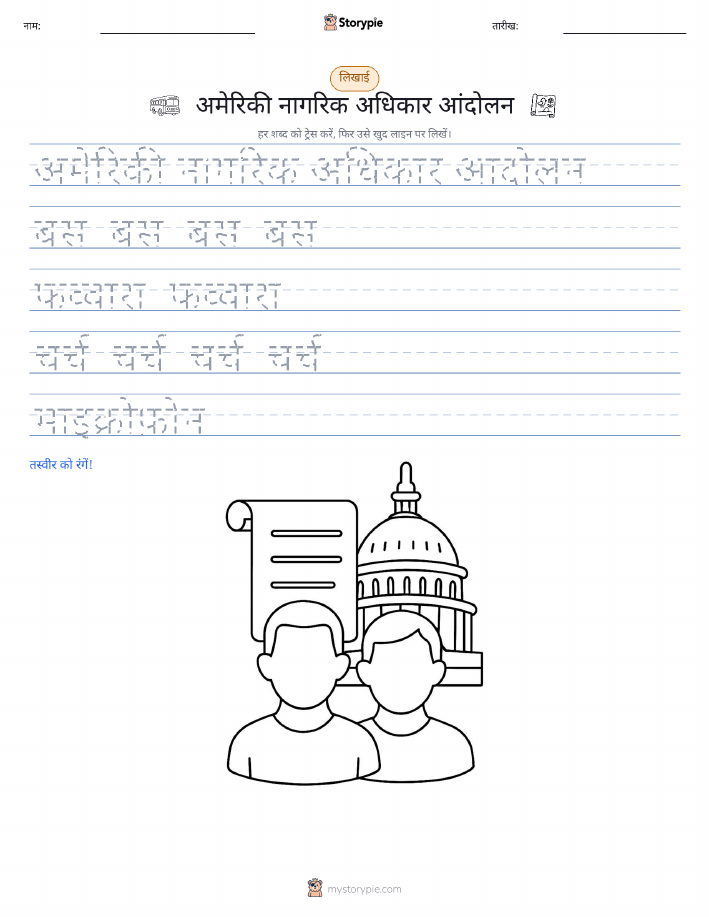 नाम:
Storypie
तारीख:
लिखाई
अमेरिकी नागरिक अधिकार आंदोलन
हर शब्द को ट्रेस करें, फिर उसे खुद लाइन पर लिखें।
अमेरिकी नागरिक अधिकार आंदोलन
बस बस बस बस
फव्वारा फव्वारा
चर्च चर्च चर्च चर्च
माइक्रोफ़ोन
तस्वीर को रंगें!
mystorypie.com